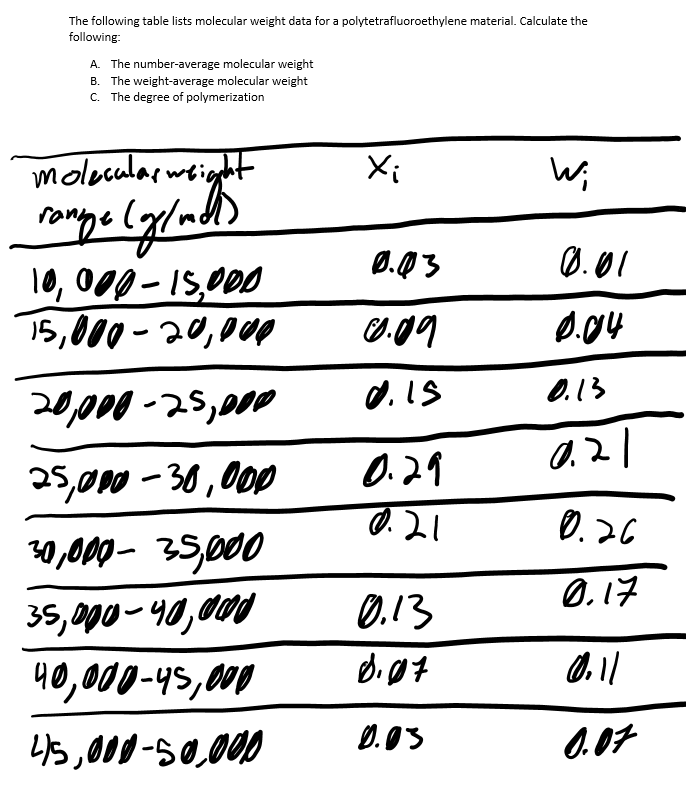 The following table lists molecular weight data for a polytetrafluoroethylene material. Calculate the
following:
A. The number-average molecular weight
B. The weight-average molecular weight
C. The degree of polymerization
molecular weight Xi Wi
range (g/mol)
10,000-15,000 0.03 0.01
15,000-20,000 0.09 0.04
20,000-25,000 0.15 0.13
25,000-30,000 0.29 0.21
30,000-35,000 0.21 0.26
35,000-40,000 0.13 0.17
40,000-45,000 0.07 0.11
45,000-50,000 0.03 0.07